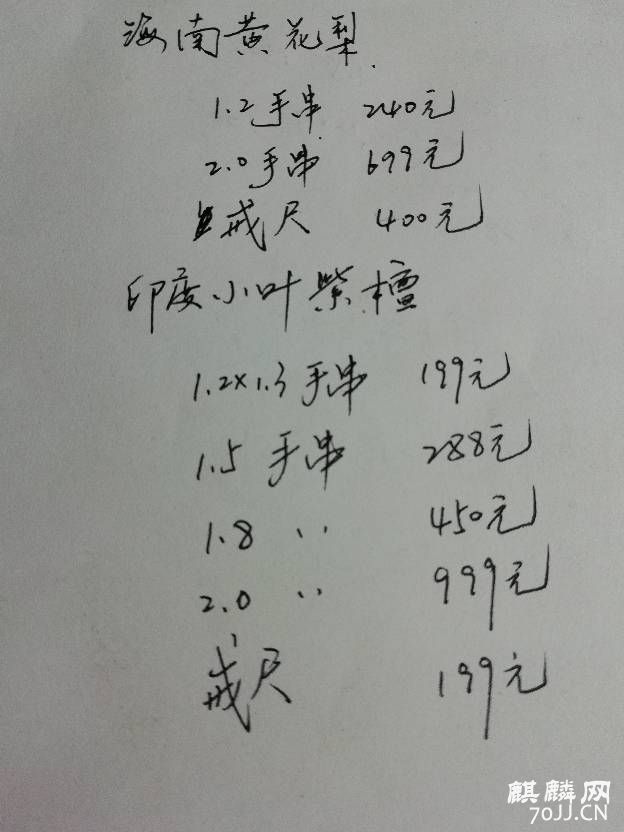 海南黄花梨
1.2手串 240元
2.0手串 699元
戒尺 400元
印度小叶紫檀
1.2×1.3手串 199元
1.5 手串 288元
1.8 〃 450元
2.0 〃 999元
戒尺 199元
麒麟网
70JJ.CN